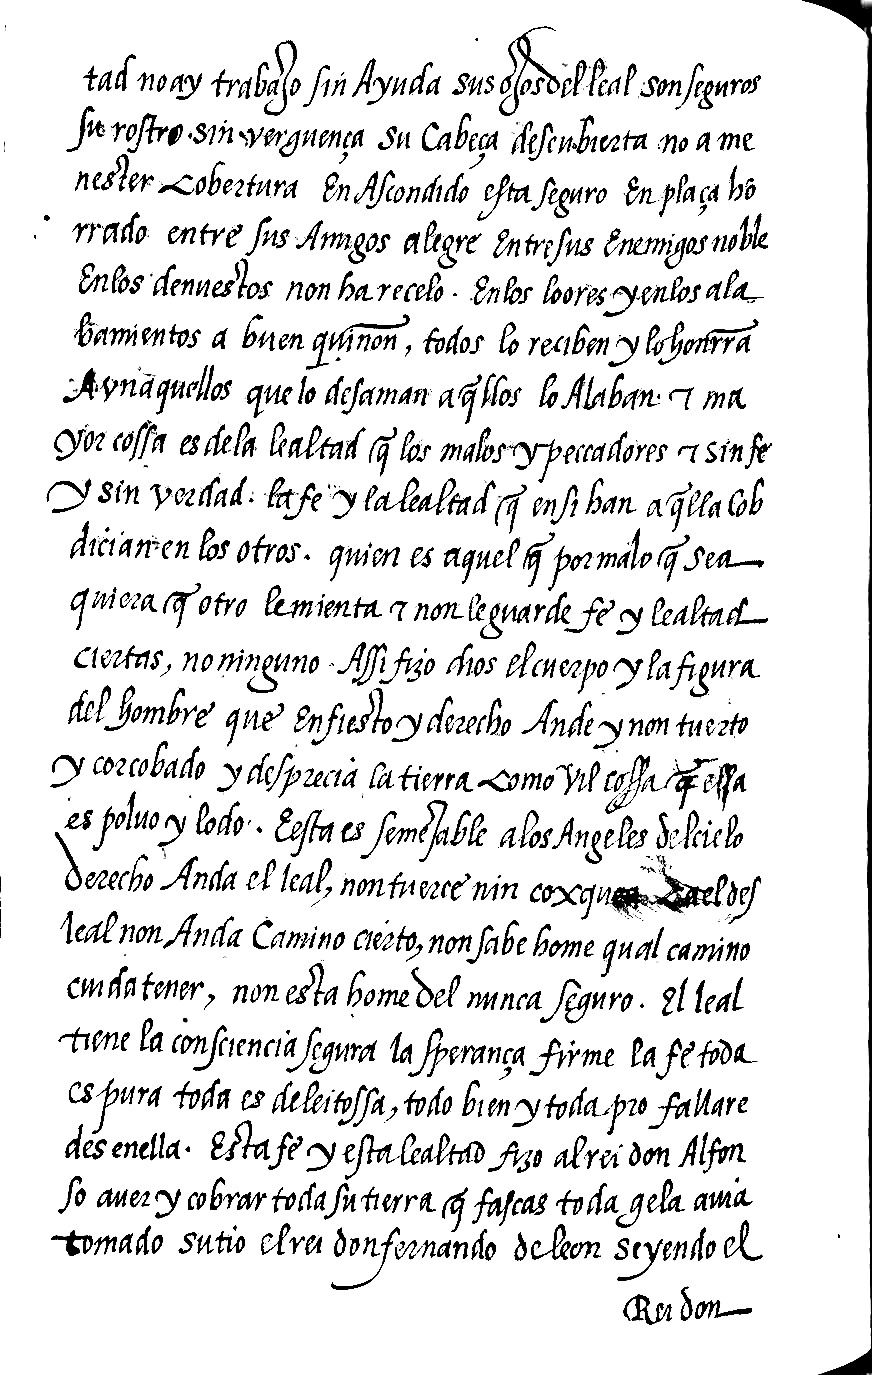 tad no ay trabajo sin Ayuda sus ojos del leal son seguros
su rostro sin verguença su Cabeça descubierta no a me
nester Cobertura En Ascondido esta seguro En plaça hō
rrado entre sus Amigos alegre Entre sus Enemigos noble
En los denuestos non ha recelo. En los loores y en los ala
bamientos a buen quiñon, todos lo reciben y lo honrra
Avn aquellos que lo desaman aq̃llos lo Alaban. ⁊ ma
yor cossa es de la lealtad q̃ los malos y peccadores ⁊ sin fe
y sin verdad. la fe y la lealtad q̃ en si han aq̃lla Cob
dician en los otros. quien es aquel q̃ por malo q̃ sea
quiera q̃ otro le mienta ⁊ non le guarde fe y lealtad
ciertas, no ninguno. Assi fizo dios el cuerpo y la figura
del hombre que Enfiesto y derecho Ande y non tuerto
y corcobado y desprecia la tierra Como Vil cossa q̃ essa
es poluo y lodo. E esta es semejable a los Angeles del cielo
Derecho Anda el leal, non tuerce nin coxquea Ca el des
leal non Anda Camino cierto, non sabe home qual camino
cuida tener, non esta home del nunca seguro. El leal
tiene la consciencia segura la sperança firme la fe toda
es pura toda es deleitossa, todo bien y toda pro fallare
des en ella. Esta fe y esta lealtad fizo al rei don Alfon
so auer y cobrar toda su tierra q̃ fascas toda gela auia
tomado su tio el rei don fernando de leon seyendo el
Rei don